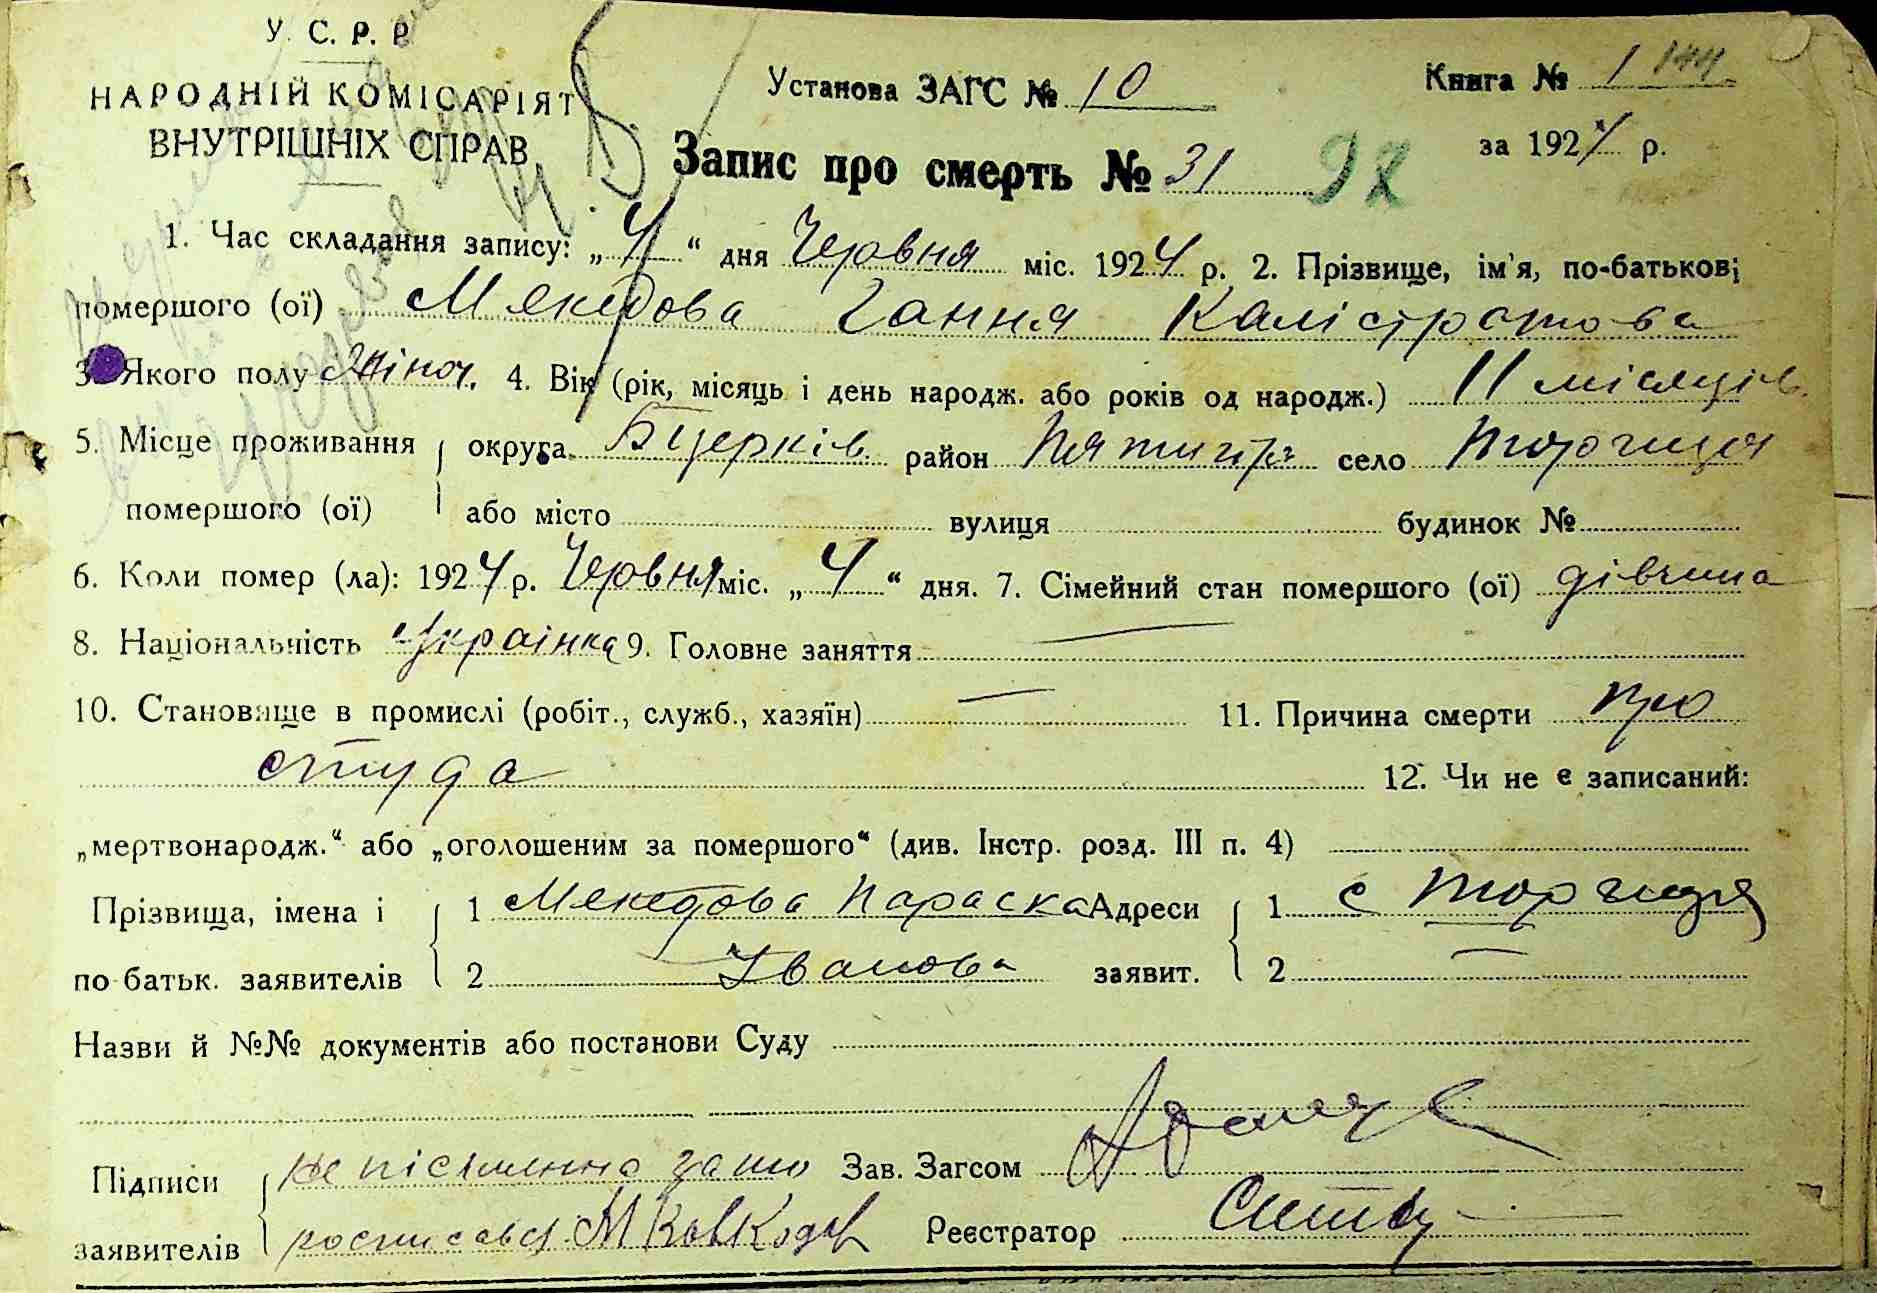 У. С. Р. Р.
НАРОДНІЙ КОМІСАРІЯТ
ВНУТРІШНІХ СПРАВ
Установа ЗАГС № 10
Книга № 1 144
за 1924 р.
Запис про смерть № 31 92
1. Час складання запису: „4“ дня Червня міс. 1924 р. 2. Прізвище, ім'я, по-батькові
помершого (ої) Мякедова Гання Калістратова
3. Якого полу Жіноч. 4. Вік (рік, місяць і день народж. або років од народж.) 11 місяців
5. Місце проживання округа Бцерків район Пятигір село Торчиця
помершого (ої) або місто вулиця будинок №
6. Коли помер (ла): 1924 р. Червня міс. „4“ дня. 7. Сімейний стан помершого (ої) дівчина
8. Національність Українка 9. Головне заняття —
10. Становище в промислі (робіт., служб., хазяїн) — 11. Причина смерти про
студа 12. Чи не є записаний:
„мертвонародж.“ або „оголошеним за помершого“ (див. Інстр. розд. III п. 4)
Прізвища, імена і 1 Мякедова Параска Адреси 1 с Торчиця
по батьк. заявителів 2 Іванова заявит. 2 —
Назви й №№ документів або постанови Суду
Підписи не пісьменна за неі Зав. Загсом
заявителів росписався М Реєстратор